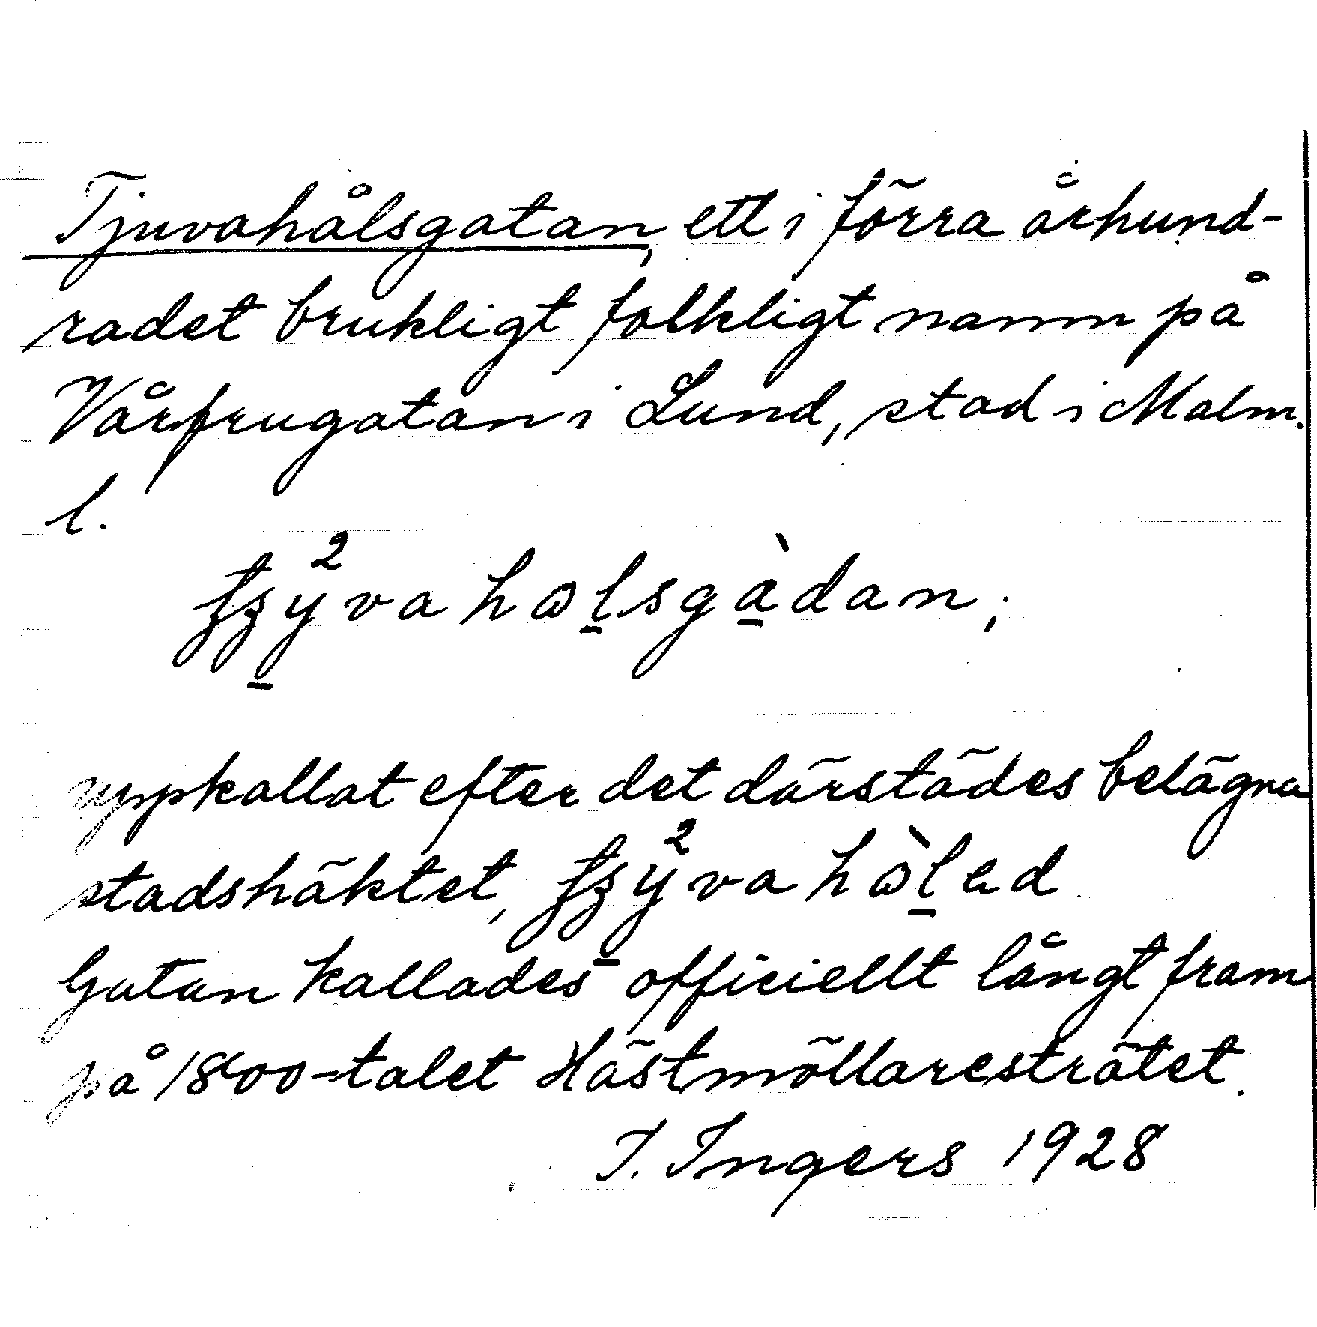 Tjuvahålsgatan, ett i förra århund-
radet brukligt folkligt namn på
Vårfrugatan i Lund, stad i Malm.
l.
uppkallat efter det därstädes belägna
stadshäktet,
Gatan kallades officiellt långt fram
på 1800-talet Hästmöllaresträtet.
I. Ingers 1928